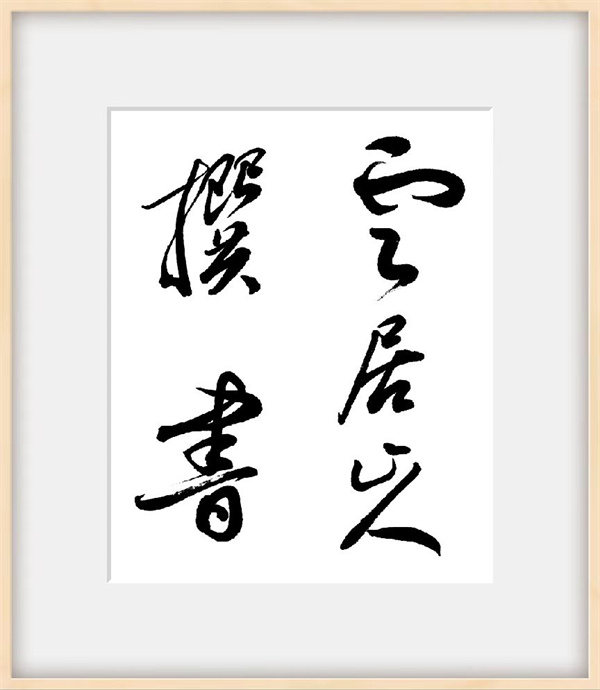 雲居山人
撰書